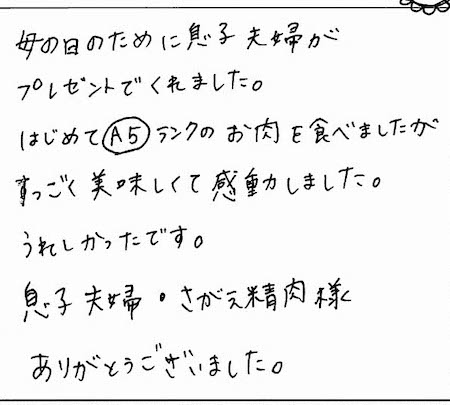 母の日のために息子夫婦が
プレゼントでくれました。
はじめてA5ランクのお肉を食べましたが
すっごく美味しくて感動しました。
うれしかったです。
息子夫婦・さがえ精肉様
ありがとうございました。